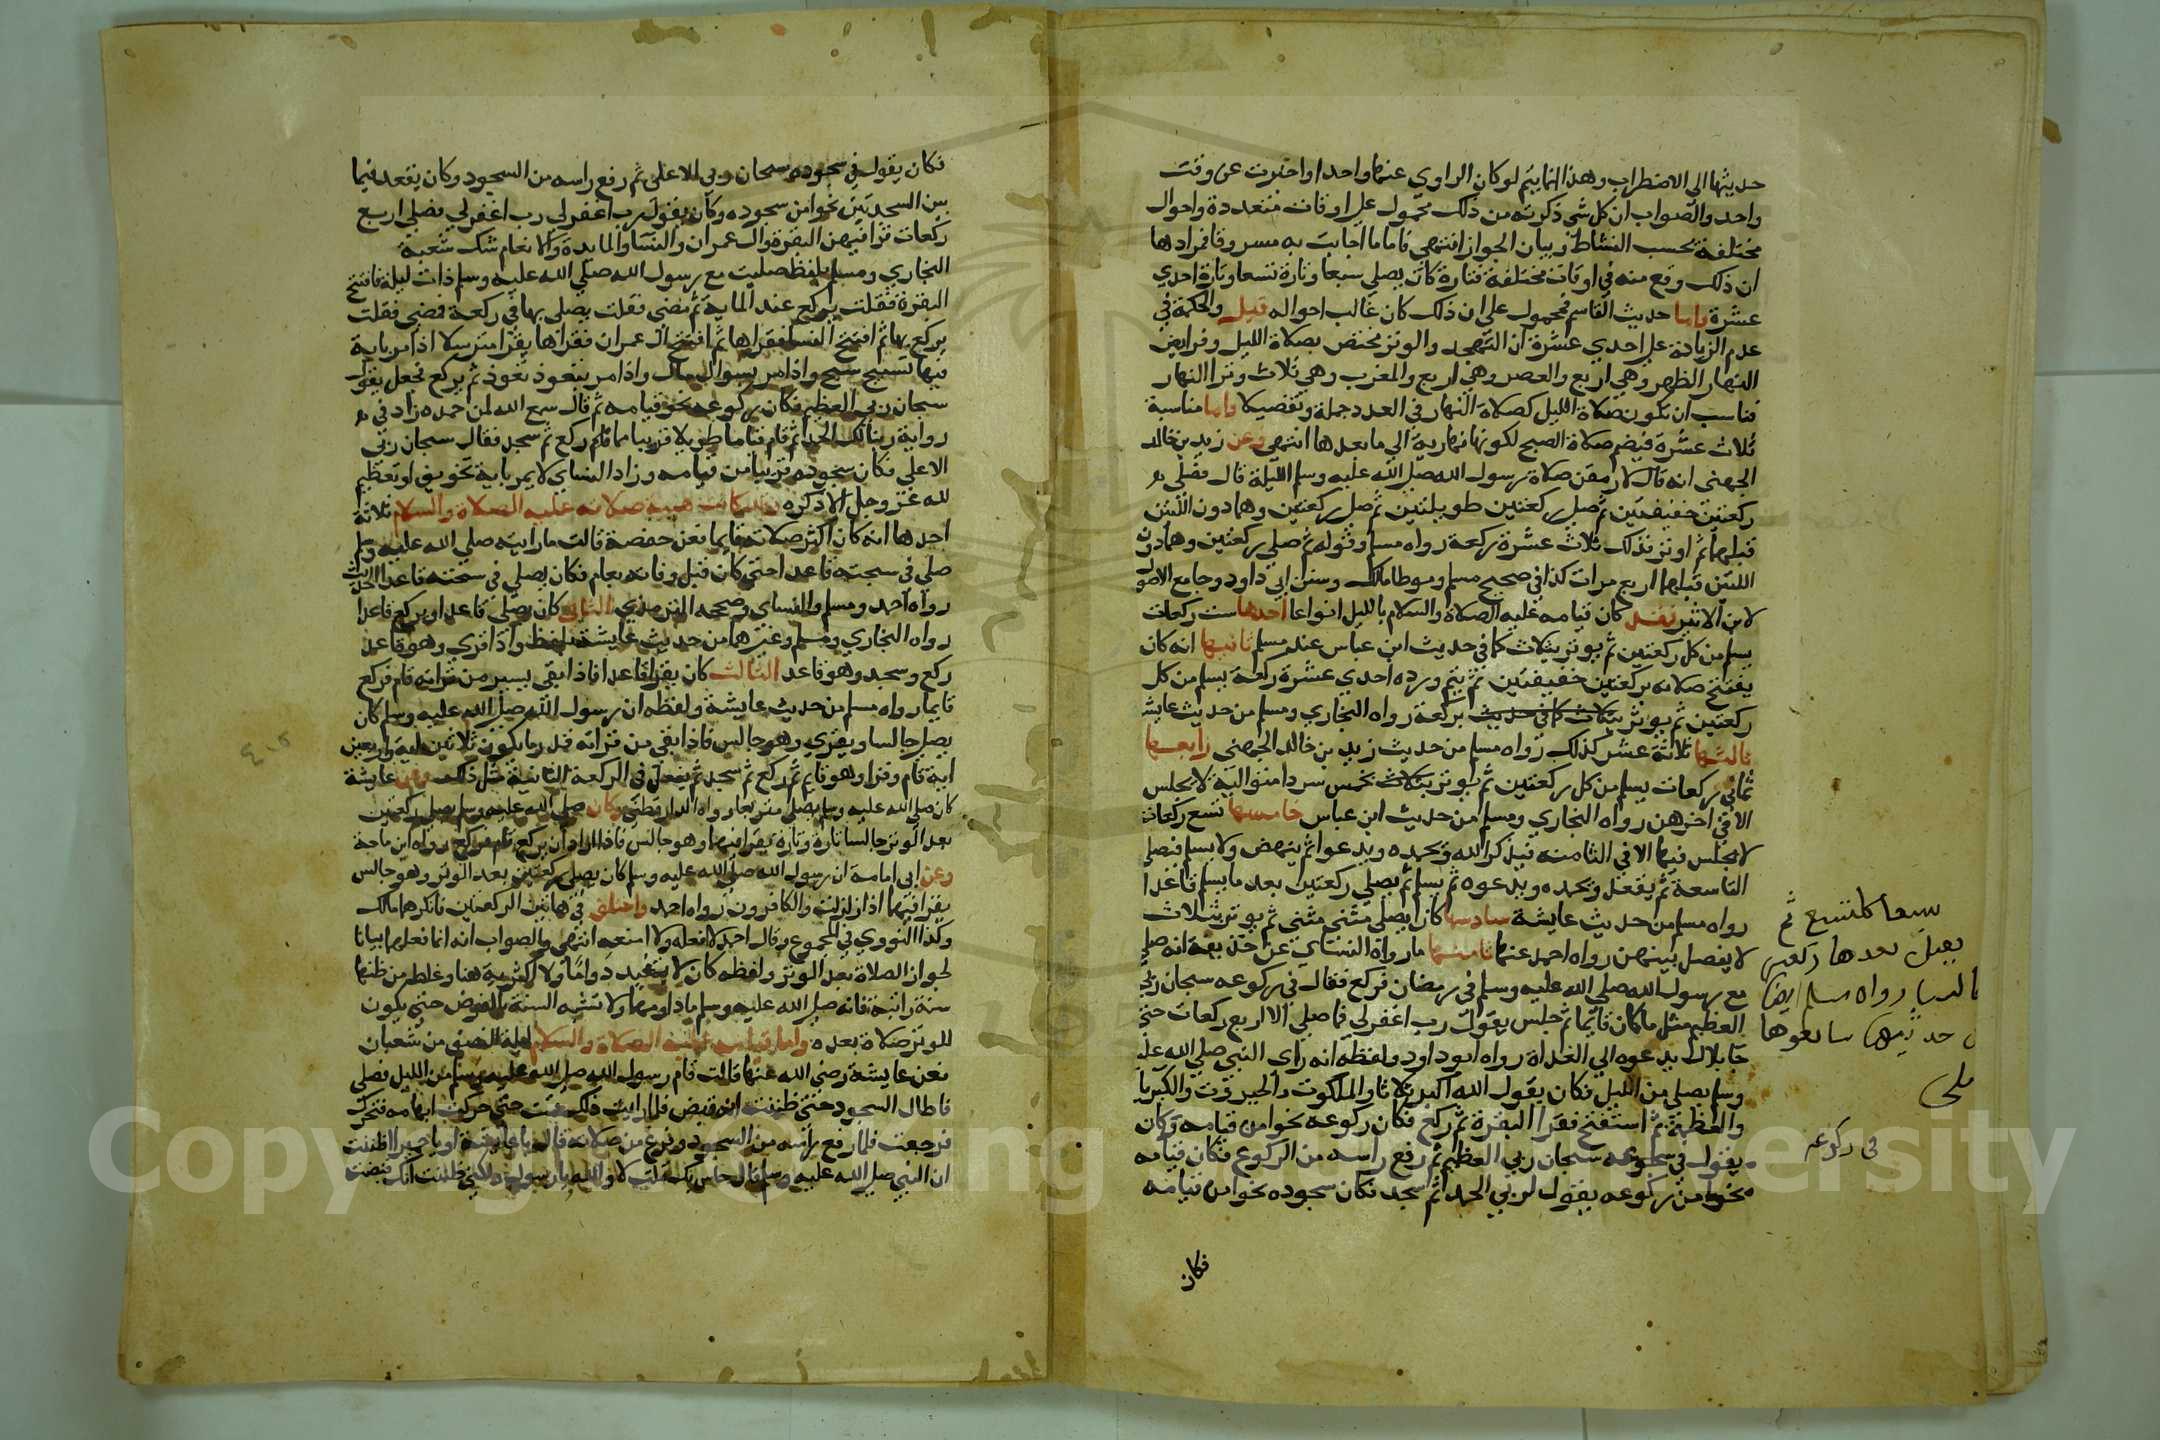 حديثها الي الاضطراب وهذا انما يتم لو كان الراوي عنها واحدا واخبرت عن وقت
واحد والصواب ان كل شي ذكرته من ذلك محمول علي اوقات متعددة واحوال
مختلفة بحسب النشاط وبيان الجواز انتهي فاما ما اجابت به مسروقا فمرادها
ان ذلك وقع منه في اوقات مختلفة فتارة كان يصلي سبعا وتارة تسعا وتارة احدي
عشرة واما حديث القاسم فمحمول علي ان ذلك كان غالب احواله قيل والحكمة في
عدم الزيادة علي احدي عشرة ان التهجد والوتر مختص بصلاة الليل وفرايض
النهار الظهر وهي اربع والعصر وهي اربع والمغرب وهي ثلاث وتر النهار
فناسب ان تكون صلاة الليل كصلاة النهار في العدد جملة وتفصيلا واما مناسبة
ثلاث عشرة فيضم صلاة الصبح لكونها نهارية الي ما بعدها انتهي وعن زيد بن خالد
الجهني انه قال لارمقن صلاة رسول الله صلي الله عليه وسلم الليلة قال فصلي
ركعتين خفيفتين ثم صلي ركعتين طويلتين ثم صلي ركعتين وهما دون اللتين
قبلهما ثم اوتر فذلك ثلاث عشرة ركعة رواه مسلم وقوله ثم صلي ركعتين وهما دون
اللتين قبلهما اربع مرات كذا في صحيح مسلم وموطا مالك وسنن ابي داود وجامع الاصول
لابن الاثير فقد كان قيامه عليه الصلاة والسلام بالليل انواعا احدها ست ركعات
يسلم من كل ركعتين ثم يوتر بثلاث كما في حديث ابن عباس عند مسلم ثانيها انه كان
يفتتح صلاته بركعتين خفيفتين ثم يتم ورده احدي عشرة ركعة يسلم من كل
ركعتين ثم يوتر بثلاث كما في حديث بركعة رواه البخاري ومسلم من حديث عايشة
ثالثها ثلاثة عشر كذلك رواه مسلم من حديث زيد بن خالد الجهني رابعها
ثماني ركعات يسلم من كل ركعتين ثم يوتر بثلاث بخمس سردا متوالية لا يجلس
الا في اخرهن رواه البخاري ومسلم من حديث ابن عباس خامسها تسع ركعات
لا يجلس فيها الا في الثامنة فيذكر الله ويحمده ويدعوا ثم ينهض ولا يسلم فيصلي
التاسعة ثم يقعد ويحمده ويدعوه ثم يسلم ثم يصلي ركعتين بعد ما يسلم قاعدا
رواه مسلم من حديث عايشة سادسها كان يصلي مثني مثني ثم يوتر بثلاث
لا يفصل بينهن رواه احمد عنها ثامنها ما رواه النسائي عن حذيفة انه صلي
مع رسول الله صلي الله عليه وسلم في رمضان فركع فقال في ركوعه سبحان ربي
العظيم مثل ما كان قايما ثم جلس يقول رب اغفر لي فما صلي الا اربع ركعات حتي
جا بلال يدعوه الي الغداة رواه ابو داود ولفظه انه راي النبي صلي الله عليه
وسلم يصلي من الليل فكان يقول الله اكبر ثلاثا ذو الملكوت والجبروت والكبريا
والعظمة ثم استفتح فقرا البقرة ثم ركع فكان ركوعه نحوا من قيامه وكان
يقول في سجوعه سبحان ربي العظيم ثم رفع راسه من الركوع فكان قيامه
نحوا من ركوعه يقول لربي الحمد ثم سجد فكان سجوده نحوا من قيامه
فكان
سبعا كالتسع ثم
يصلي بعدها ركعتين
جالسا رواه مسلم ايضا
من حديثها سابعها
في ركوعه
فكان يقول في سجوده سبحان ربي الاعلي ثم رفع راسه من السجود وكان يقعد فيما
بين السجدتين نحوا من سجوده وكان يقول رب اغفر لي رب اغفر لي فصلي اربع
ركعات قرا فيهن البقرة وال عمران والنسا والمايدة والانعام شك شعبة
البخاري ومسلم بلفظ صليت مع رسول الله صلي الله عليه وسلم ذات ليلة فافتتح
البقرة فقلت يركع عند الماية ثم مضي فقلت يصلي بها في ركعة فمضي فقلت
يركع بها ثم افتتح النسا فقراها ثم افتتح ال عمران فقراها يقرا مترسلا اذا مر باية
فيها تسبيح سبح واذا مر بسوال سال واذا مر بتعوذ تعوذ ثم يركع فجعل يقول
سبحان ربي العظيم فكان ركوعه نحو قيامه ثم قال سمع الله لمن حمده زاد في
رواية ربنا لك الحمد ثم قام قياما طويلا قريبا مما ركع ثم سجد فقال سبحان ربي
الاعلي فكان سجوده قريبا من قيامه وزاد النساي لا يمر باية تخويف او تعظيم
لله عز وجل الا ذكره وقد كانت هيية صلاته عليه الصلاة والسلام ثلاثة
احدها انه كان اكثر صلاته قايما فعن حفصة قالت ما رايته صلي الله عليه وسلم
صلي في سبحته قاعدا حتي كان قبل وفاته بعام فكان يصلي في سبحته قاعدا الحديث
رواه احمد ومسلم والنساي وصححه الترمذي الثاني كان يصلي قاعدا ويركع قاعدا
رواه البخاري ومسلم وغيرهما من حديث عايشة بلفظ واذا قري وهو قاعد
ركع وسجد وهو قاعد الثالث كان يقرا قاعدا فاذا بقي يسير من قراته قام فركع
قايما رواه مسلم من حديث عايشة ولفظه ان رسول الله صلي الله عليه وسلم كان
يصلي جالسا ويقري وهو جالس فاذا بقي من قراته قدر ما يكون ثلاثين اية واربعين
اية قام وقرا وهو قايم ثم ركع ثم سجد ثم يفعل في الركعة الثانية مثل ذلك وعن عايشة
كان صلي الله عليه وسلم يصلي متربعا رواه الدارقطني وكان صلي الله عليه وسلم يصلي ركعتين
بعد الوتر جالسا تارة وتارة يقرا فيهما وهو جالس فاذا اراد ان يركع قام فركع رواه ابن ماجة
وعن ابي امامة ان رسول الله صلي الله عليه وسلم كان يصلي ركعتين بعد الوتر وهو جالس
يقرا فيهما اذا زلزلت والكافرون رواه احمد واختلف في هاتين الركعتين فانكرهما مالك
وكذا النووي في المجموع وقال احمد لا افعله ولا امنعه انتهي والصواب انه انما فعلهما بيانا
لجواز الصلاة بعد الوتر ولفظه كان لا يفيد دواما ولا اكثرية هنا وغلط من ظنهما
سنة راتبة فانه صلي الله عليه وسلم ما داومهما ولا تشبه السنة بالفرض حتي يكون
للوتر صلاة بعده واما قيامه عليه الصلاة والسلام ليلة النصف من شعبان
فعن عايشة رضي الله عنها قالت قام رسول الله صلي الله عليه وسلم من الليل فصلي
فاطال السجود حتي ظننت انه قبض فلما رايت ذلك قمت حتي حركت ابهامه فتحرك
فرجعت فلما رفع راسه من السجود وفرغ من صلاته قال يا عايشة او يا حميرا اظننت
ان النبي صلي الله عليه وسلم قد خاس بك قلت لا والله يا رسول الله ولكني ظننت انك قبضت
Copyright © King Saud University